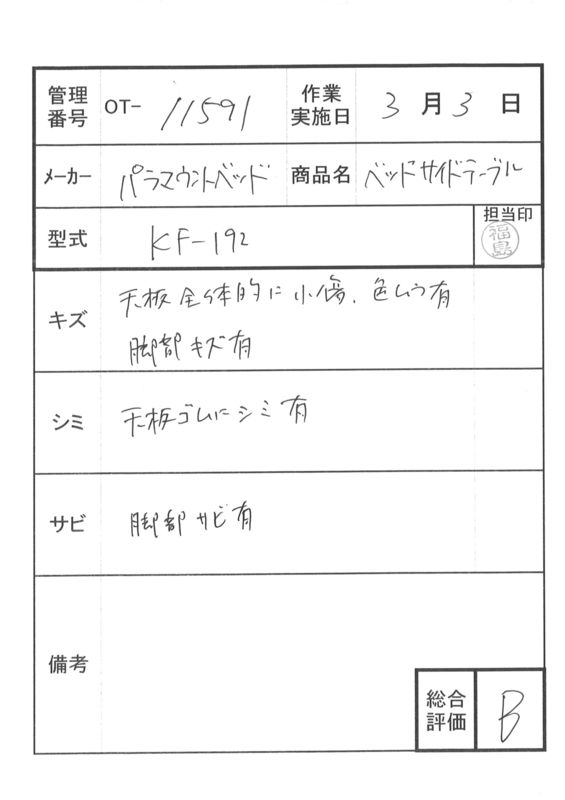 管理番号 OT- 11591 作業実施日 3月3日
メーカー パラマウントベッド 商品名 ベッドサイドテーブル
型式 KF-192 担当印 福島
キズ 天板全体的に小傷、色ムラ有
脚部キズ有
シミ 天板ゴムにシミ有
サビ 脚部サビ有
備考
総合評価 B